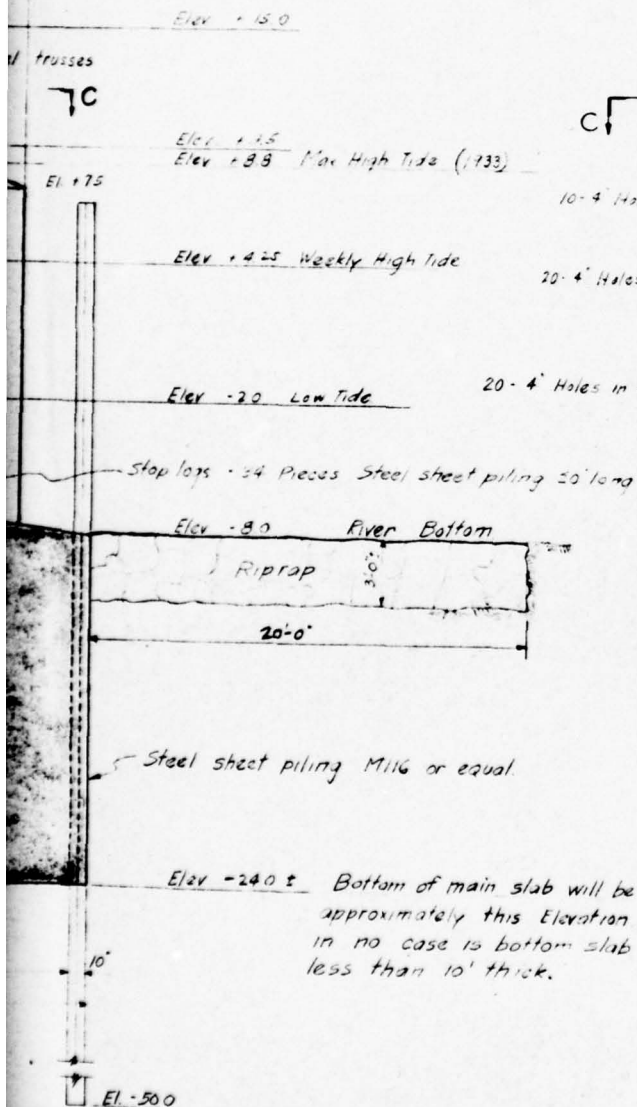 Elev + 15.0
trusses
C
C
Elev
Elev +8.8 Max High Tide (1933)
El. +7.5
10-4"
Elev +4.25 Weekly High Tide
20-4" Holes
Elev -2.0 Low Tide
20-4" Holes in
Stop logs - 34 Pieces Steel sheet piling long
Elev -8.0 River Bottom
Riprap
3'-0"
20'-0"
Steel sheet piling M116 or equal.
Elev -24.0 ± Bottom of main slab will be
approximately this Elevation
in no case is bottom slab
less than 10' thick.
10"
El. -50.0